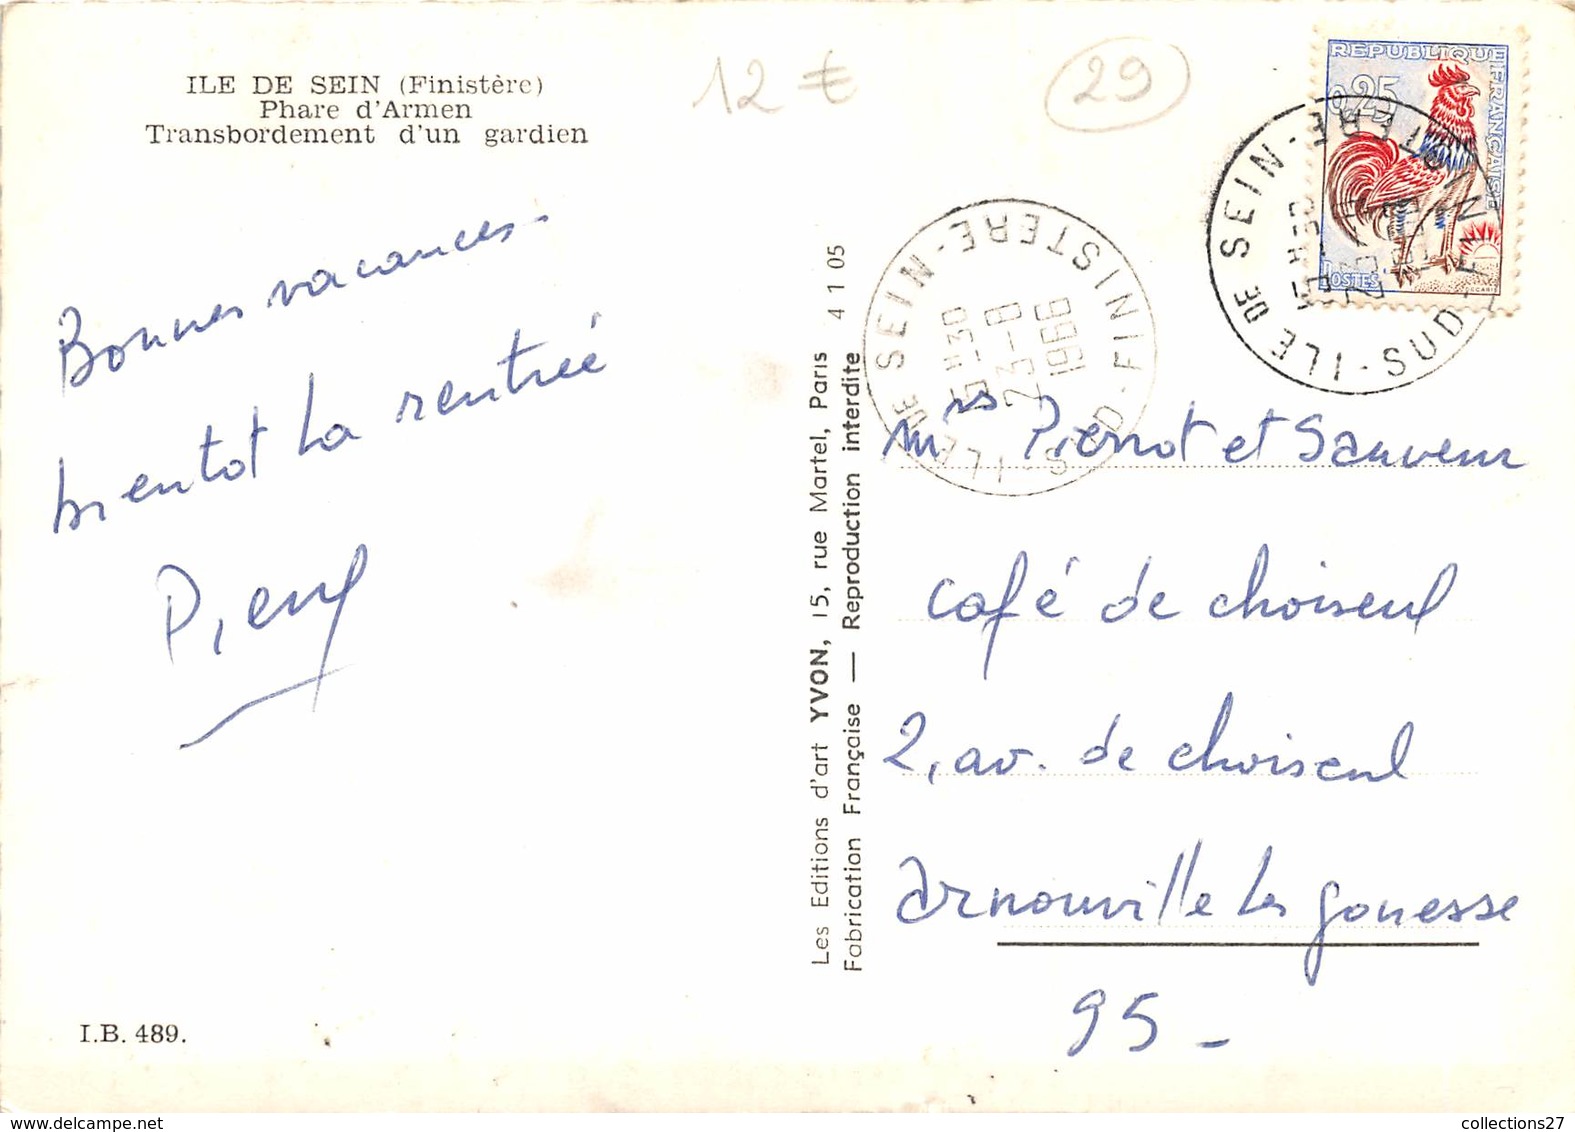 ILE DE SEIN (Finistère)
Phare d'Armen
Transbordement d'un gardien
12 €
29
REPUBLIQUE FRANÇAISE
0,25
POSTES
ILE DE SEIN - SUD-FINISTERE
15 H 30
23-8
1966
ILE DE SEIN - SUD-FINISTERE
15 H 30
23-8
1966
Bonnes vacances -
bientot la rentrée
Pierrot
Les Editions d'art YVON, 15, rue Martel, Paris 4 1 05
Fabrication Française — Reproduction interdite
Mrs Pierrot et Sauveur
café de choiseul
2, av. de choiseul
Arnouville les gonesse
95 -
I.B. 489.
collections27